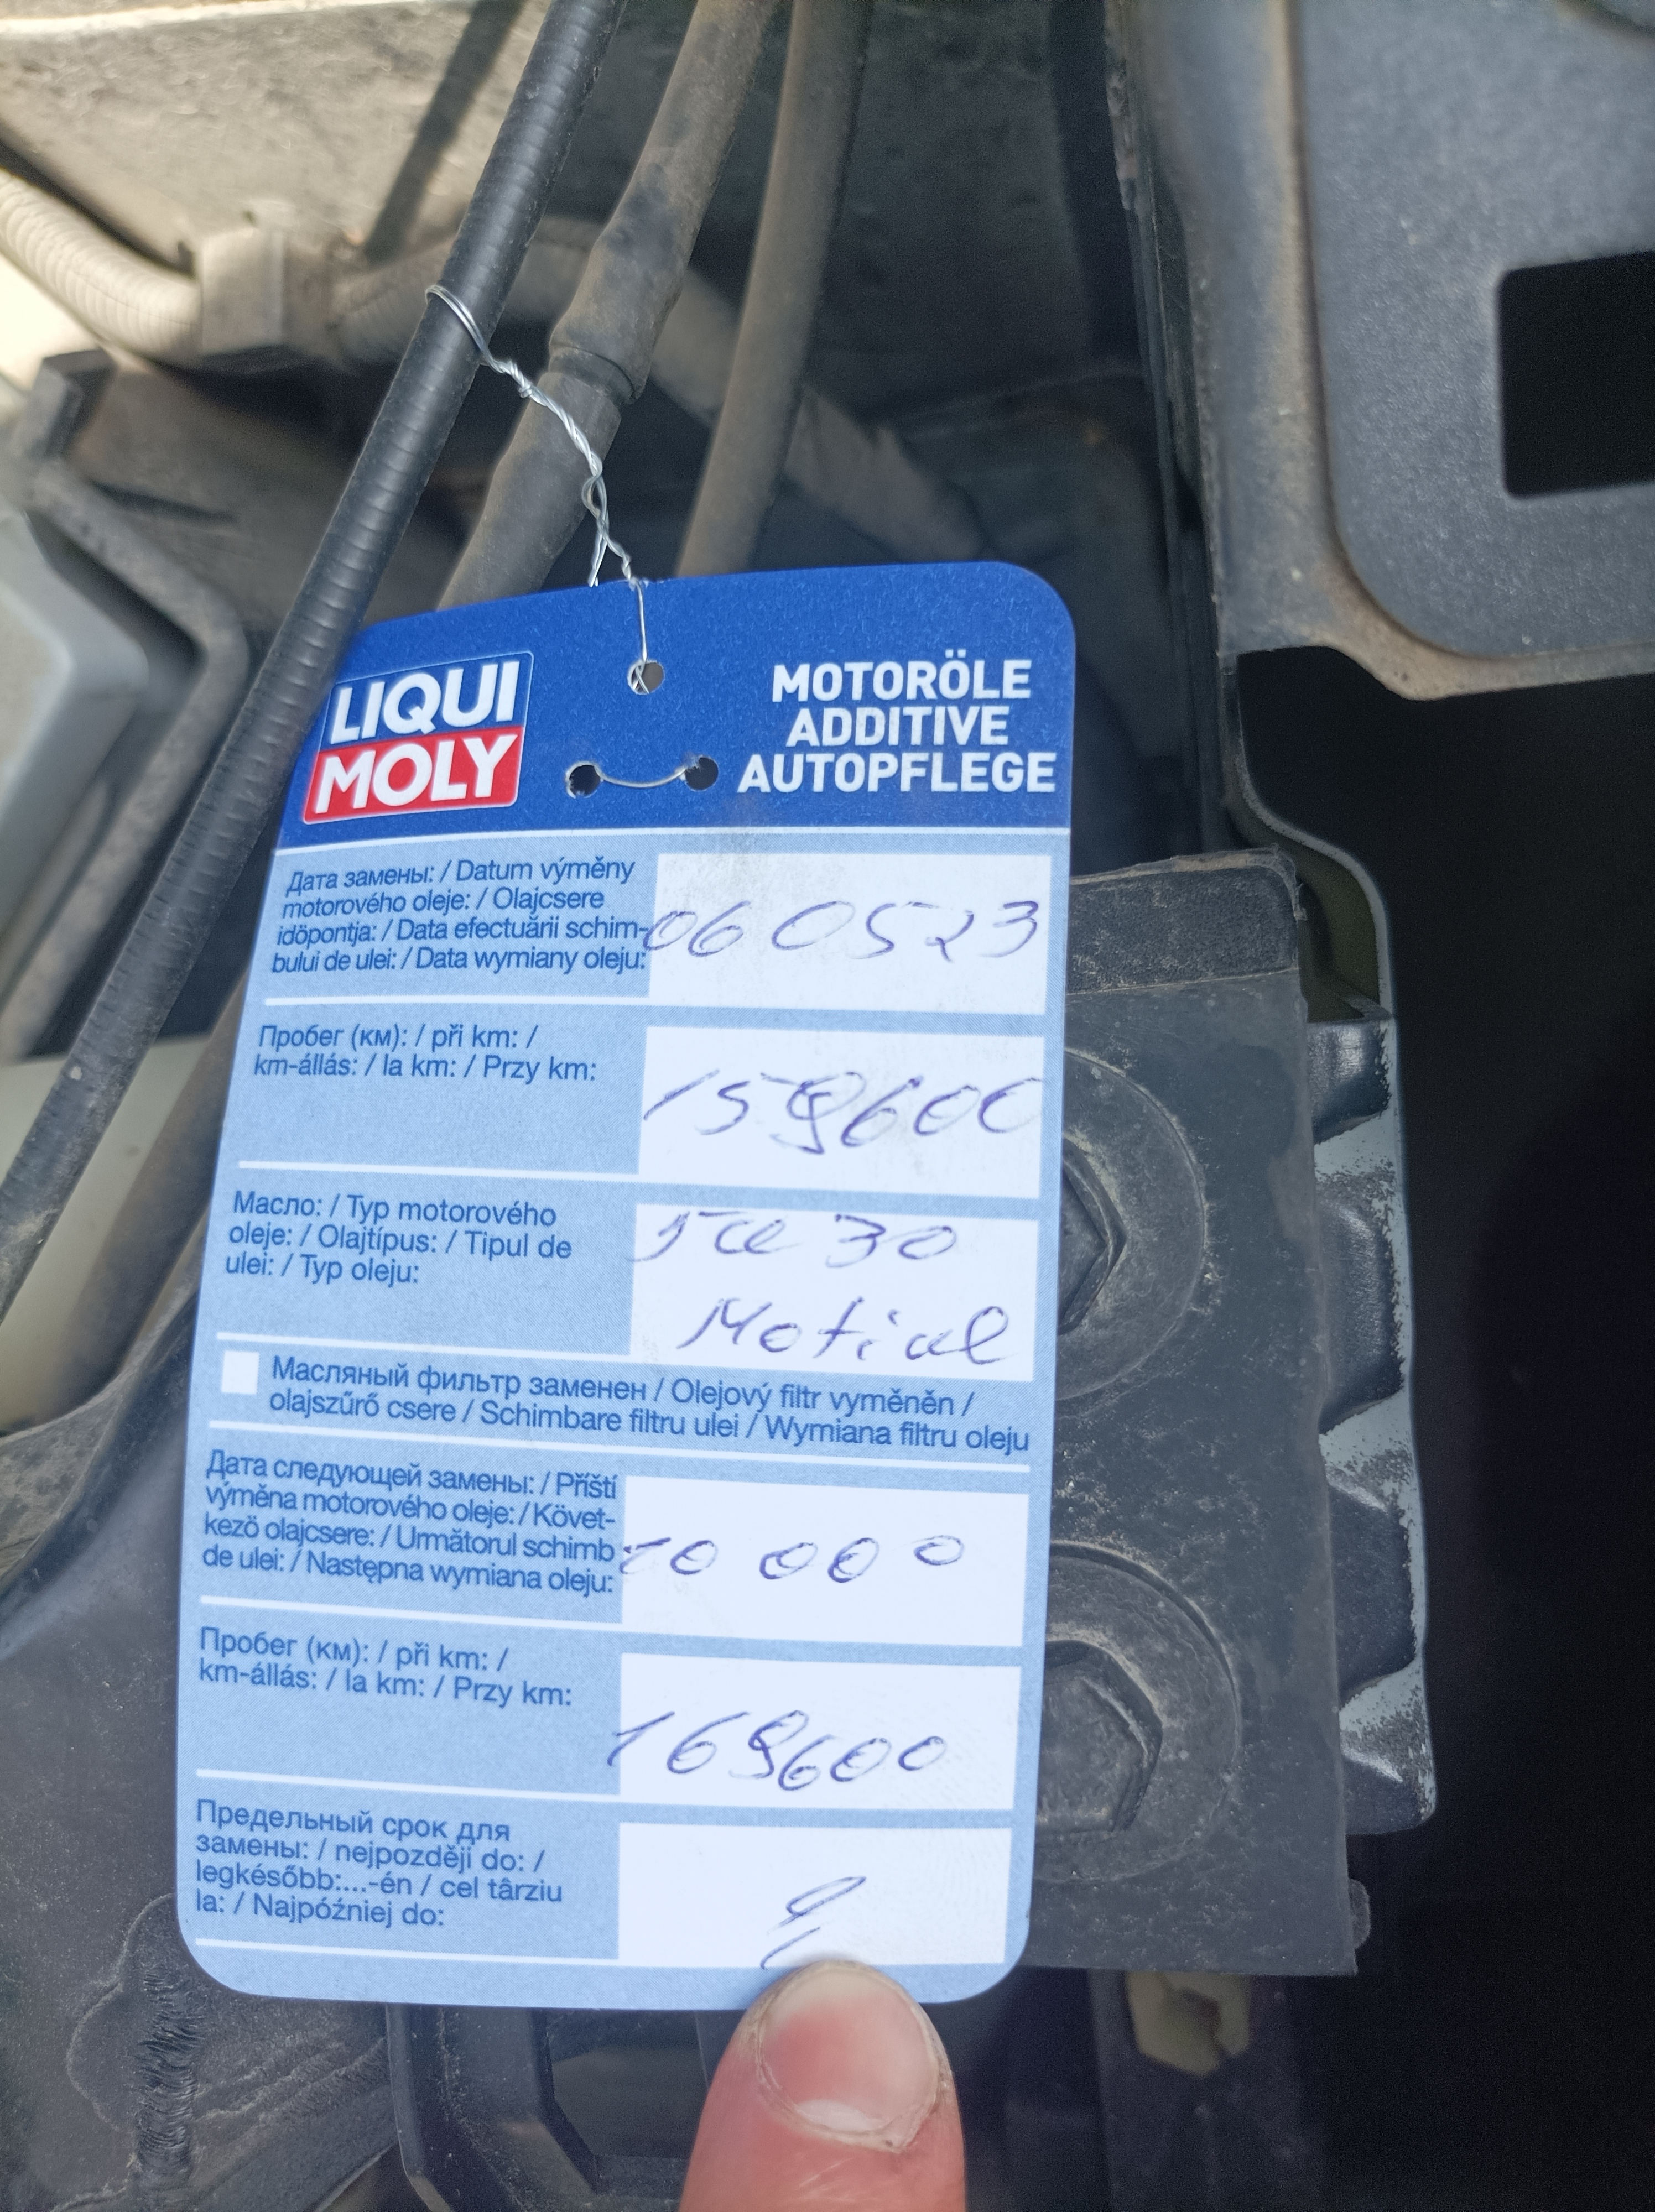 LIQUI
MOLY
MOTORÖLE
ADDITIVE
AUTOPFLEGE
Дата замены: / Datum výměny
motorového oleje: / Olajcsere
időpontja: / Data efectuării schim-
bului de ulei: / Data wymiany oleju:
06 05 23
Пробег (км): / při km: /
km-állás: / la km: / Przy km:
159600
Масло: / Typ motorového
oleje: / Olajtípus: / Tipul de
ulei: / Typ oleju:
5w 30
Motiul
Масляный фильтр заменен / Olejový filtr vyměněn /
olajszűrő csere / Schimbare filtru ulei / Wymiana filtru oleju
Дата следующей замены: / Příští
výměna motorového oleje: / Követ-
kező olajcsere: / Următorul schimb
de ulei: / Następna wymiana oleju:
10 000
Пробег (км): / při km: /
km-állás: / la km: / Przy km:
169600
Предельный срок для
замены: / nejpozději do: /
legkésőbb:...-én / cel târziu
la: / Najpóźniej do: